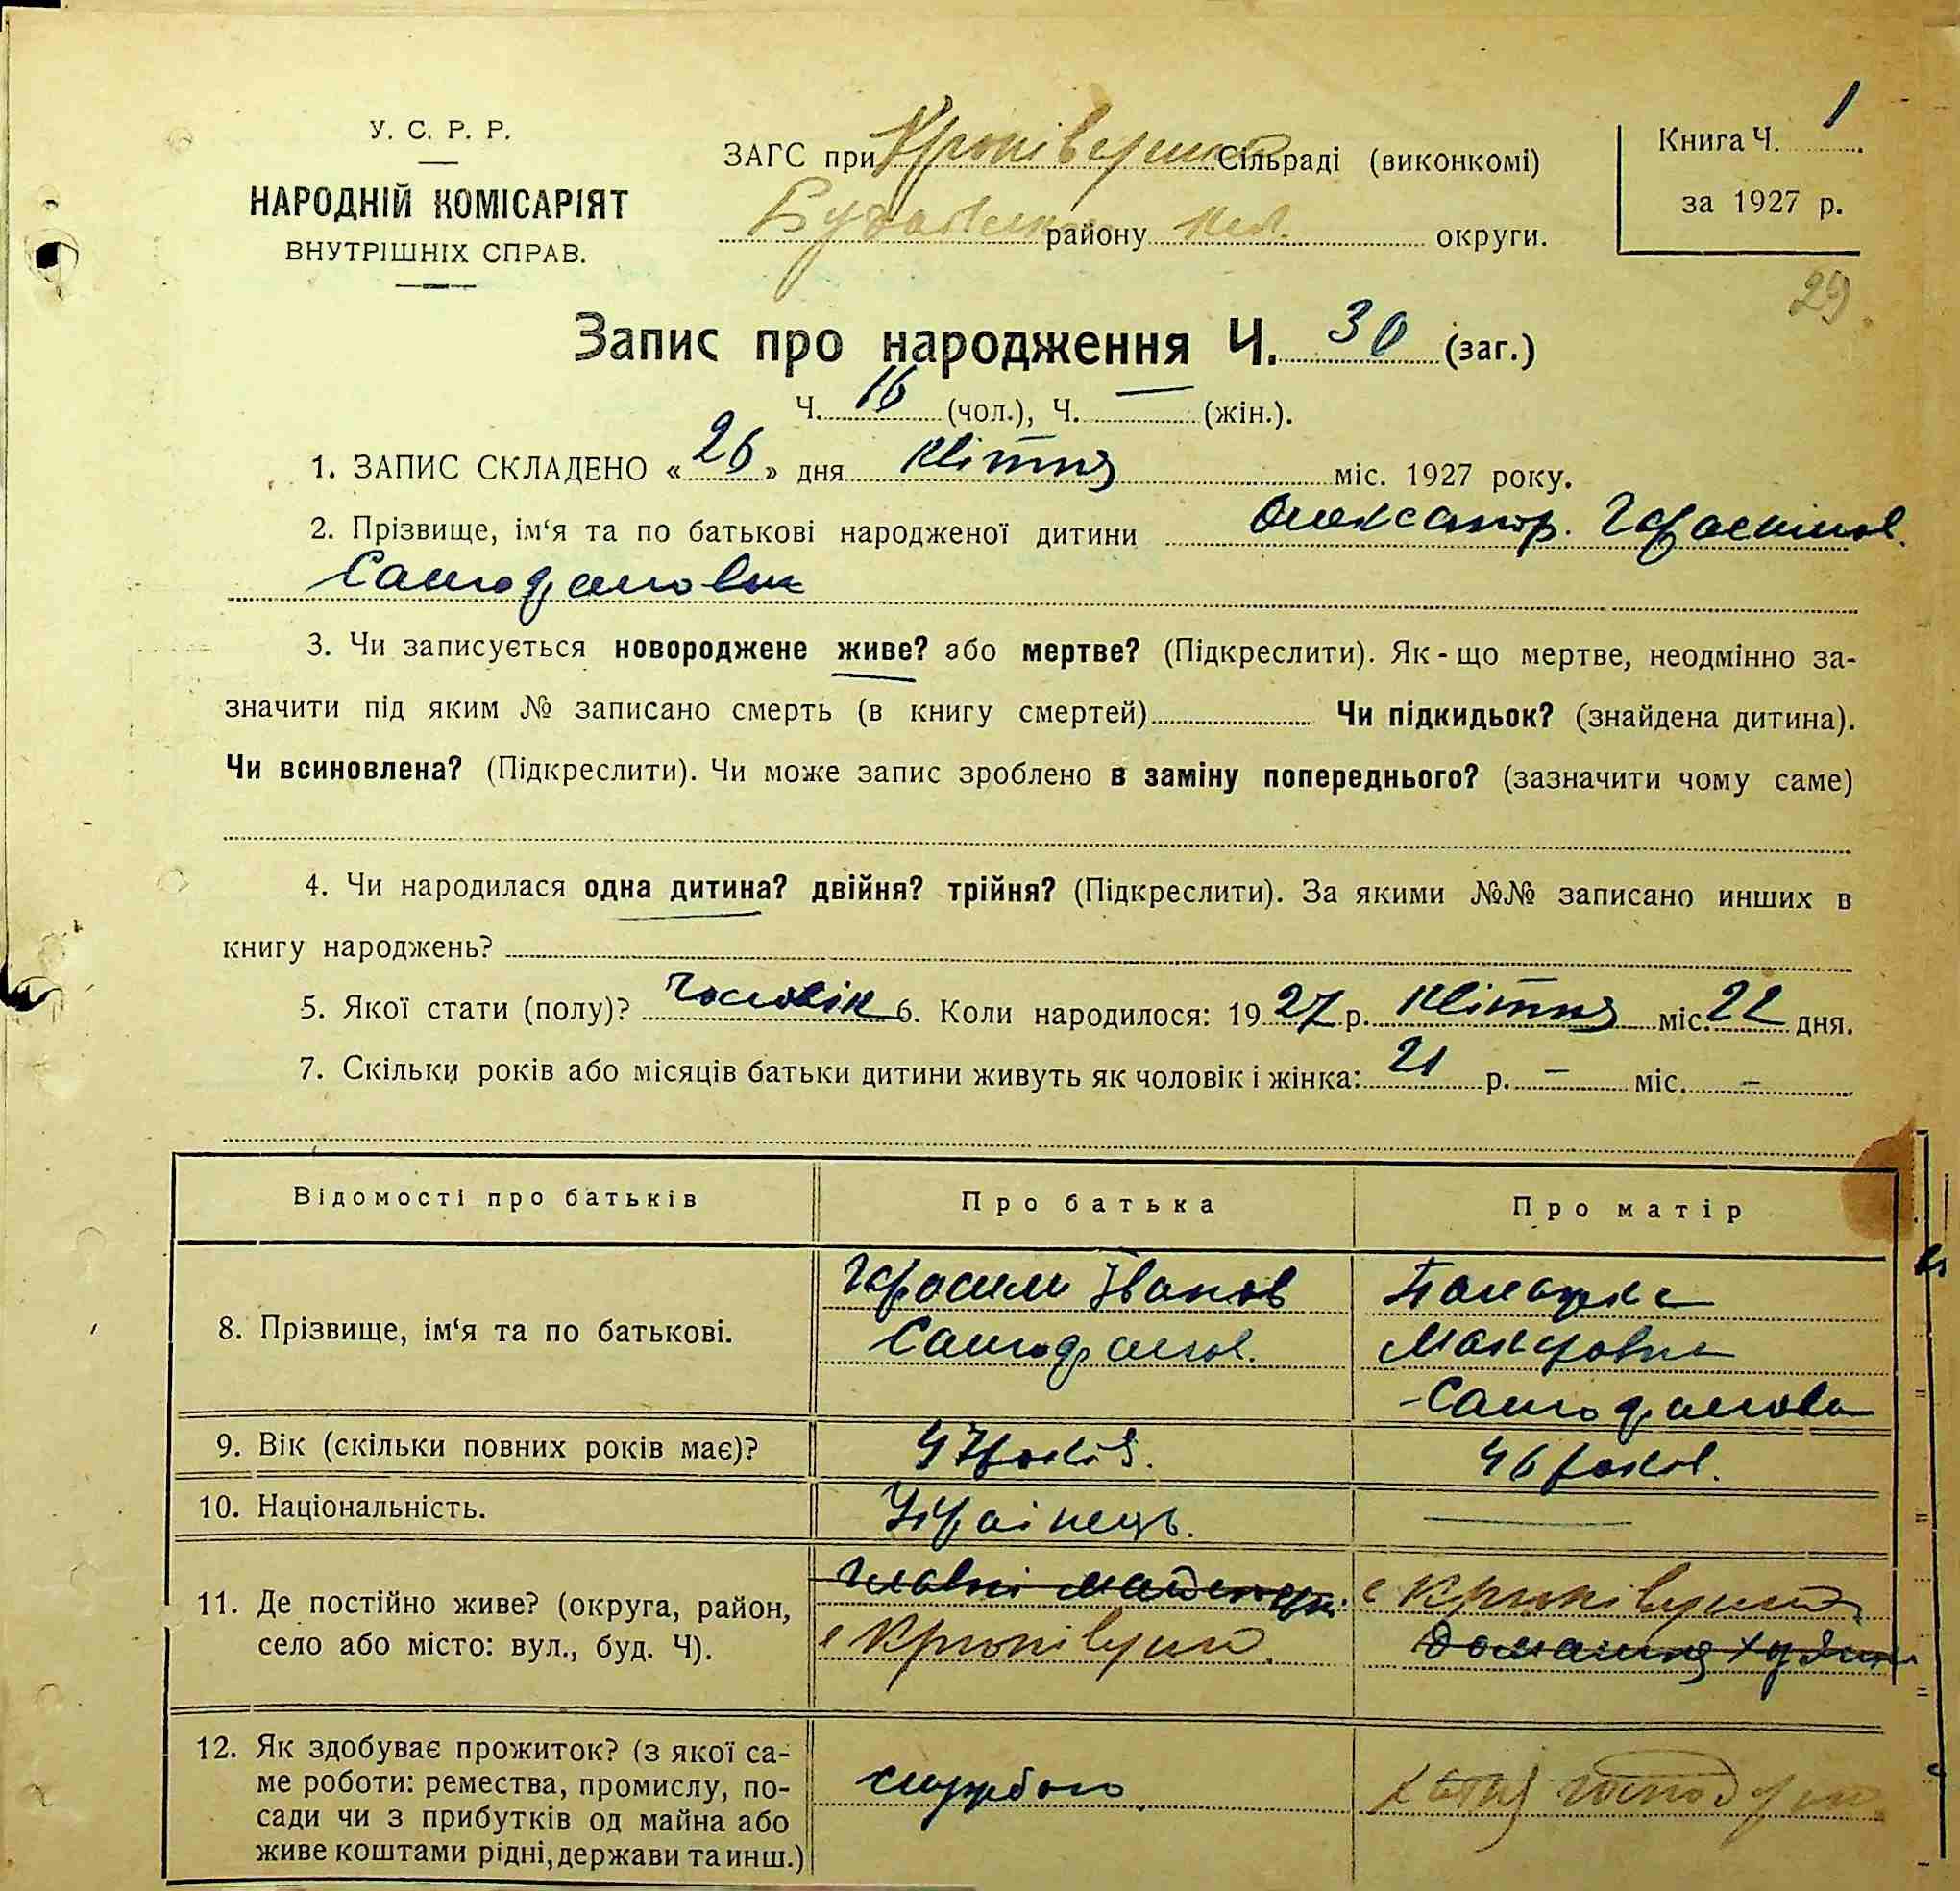 У. С. Р. Р.
НАРОДНІЙ КОМІСАРІЯТ
ВНУТРІШНІХ СПРАВ.
ЗАГС при Сільраді (виконкомі)
району округи.
Книга Ч. 1
за 1927 р.
29
Запис про народження Ч. 30 (заг.)
Ч. 16 (чол.), Ч. — (жін.).
1. ЗАПИС СКЛАДЕНО «26» дня квітня міс. 1927 року.
2. Прізвище, ім‘я та по батькові народженої дитини Олександр. Герасимов.
3. Чи записується новороджене живе? або мертве? (Підкреслити). Як-що мертве, неодмінно за-
значити під яким № записано смерть (в книгу смертей) Чи підкидьок? (знайдена дитина).
Чи всиновлена? (Підкреслити). Чи може запис зроблено в заміну попереднього? (зазначити чому саме)
4. Чи народилася одна дитина? двійня? трійня? (Підкреслити). За якими №№ записано инших в
книгу народжень?
5. Якої стати (полу)? чоловік 6. Коли народилося: 1927 р. квітня міс. 22 дня.
7. Скільки років або місяців батьки дитини живуть як чоловік і жінка: 21 р. — міс. —
Відомості про батьків
Про батька
Про матір
8. Прізвище, ім‘я та по батькові.
Герасим Іванов
9. Вік (скільки повних років має)?
47 років.
46 років.
10. Національність.
Українець.
—
11. Де постійно живе? (округа, район,
село або місто: вул., буд. Ч).
12. Як здобуває прожиток? (з якої са-
ме роботи: ремества, промислу, по-
сади чи з прибутків од майна або
живе коштами рідні, держави та инш.)
службою